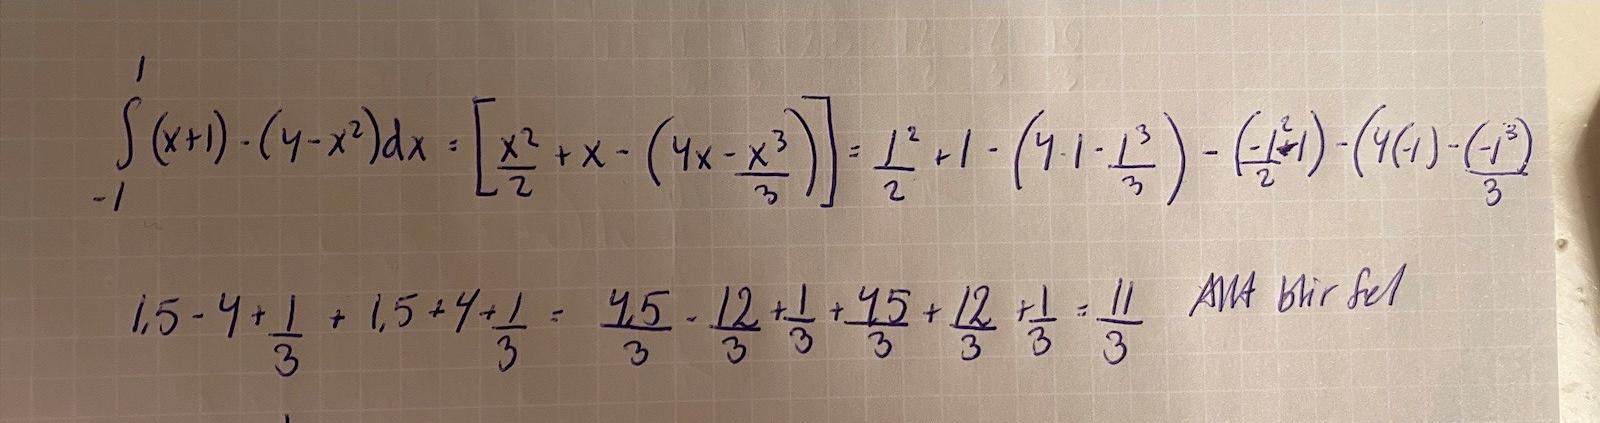 ∫₋₁¹ (x+1) - (4-x²)dx = [x²/2 + x - (4x - x³/3)] = 1²/2 + 1 - (4·1 - 1³/3) - (-1²/2 -1) - (4(-1) - (-1³)/3
1,5 - 4 + 1/3 + 1,5 + 4 + 1/3 = 4,5/3 - 12/3 + 1/3 + 4,5/3 + 12/3 + 1/3 = 11/3 Allt blir fel